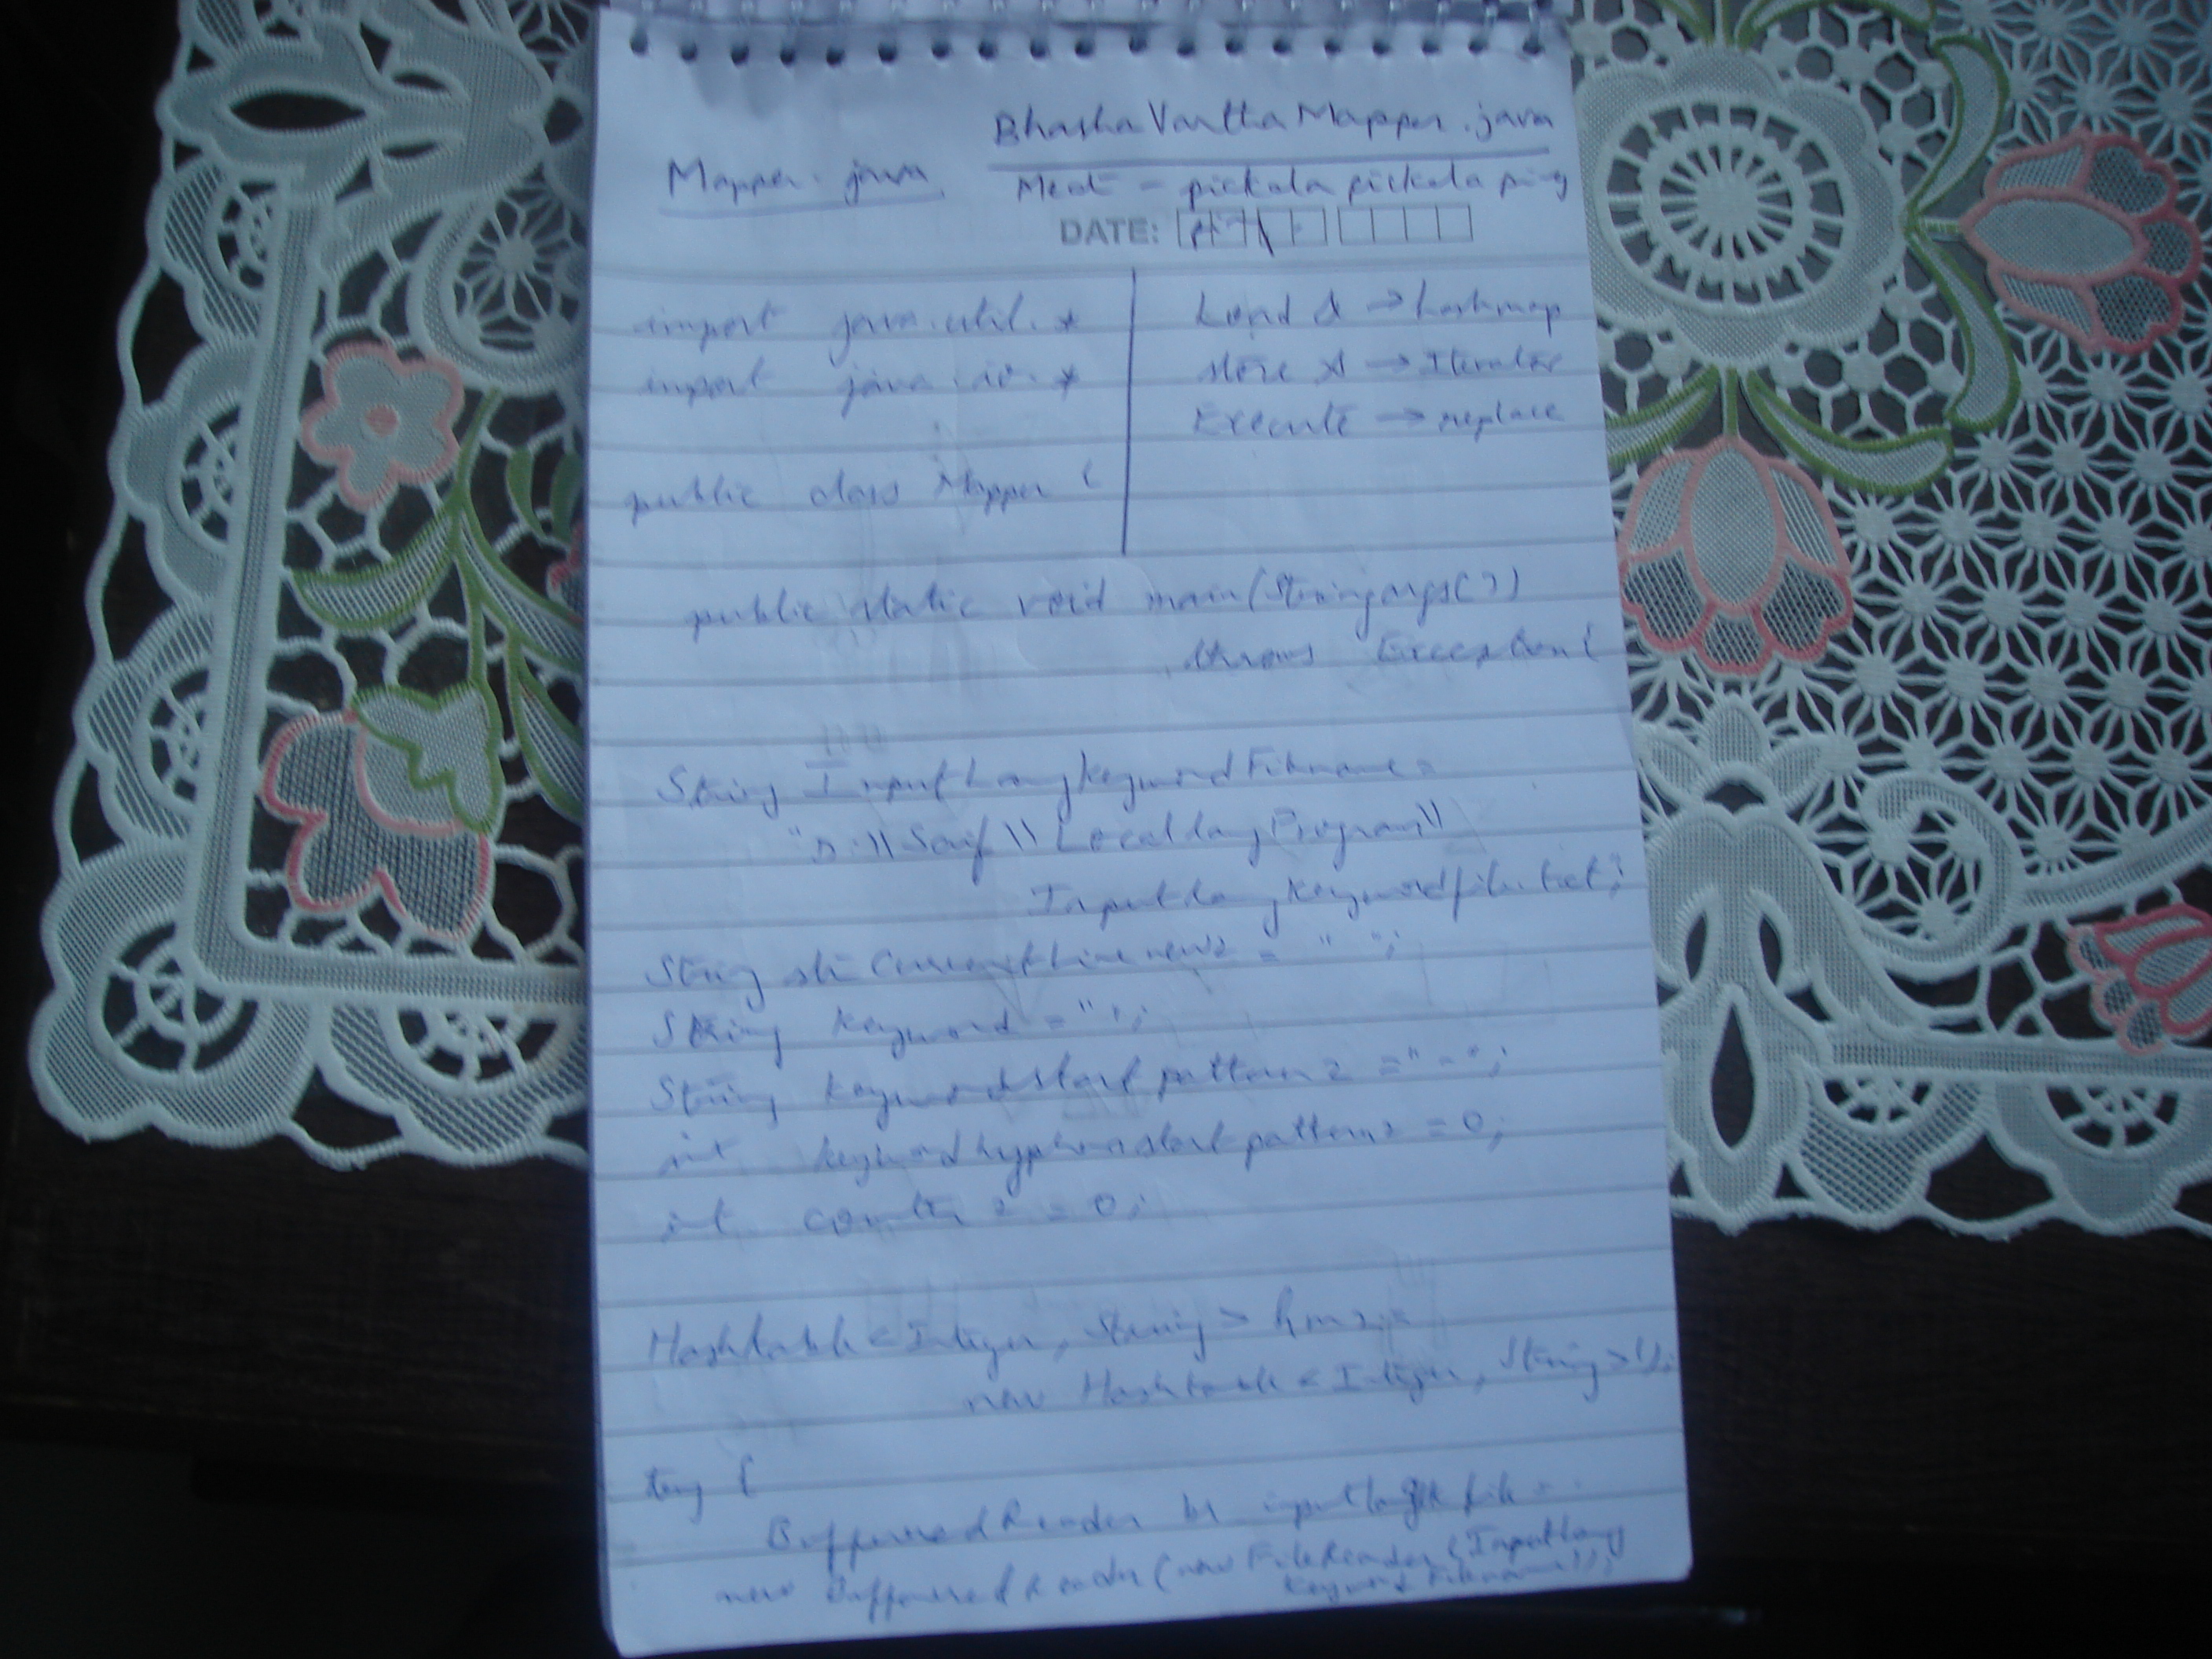 BhashaVarttaMapper.java
Mapper.java
Meat - pickala pickala
DATE:
import java.util.*
import java.io.*
Load & → hashmap
store → Iterator
Execute → replace
public class Mapper {
public static void main(String args[])
throws Exception{
String InputLangKeywordFilename =
"D:\\Saif\\LocalLangProgram\\
InputLangKeywordfile.txt;
String strCurrentLinenew2 = " ";
String keyword = "";
String keywordstartpattern2 = "-";
int keywordhyphenstartpattern2 = 0;
int counter2 = 0;
Hashtable<Integer, String> hm2 =
new Hashtable<Integer, String>();
try {
BufferredReader br inputlang file =
new BufferredReader(new FileReader(InputLang
KeywordFilename));